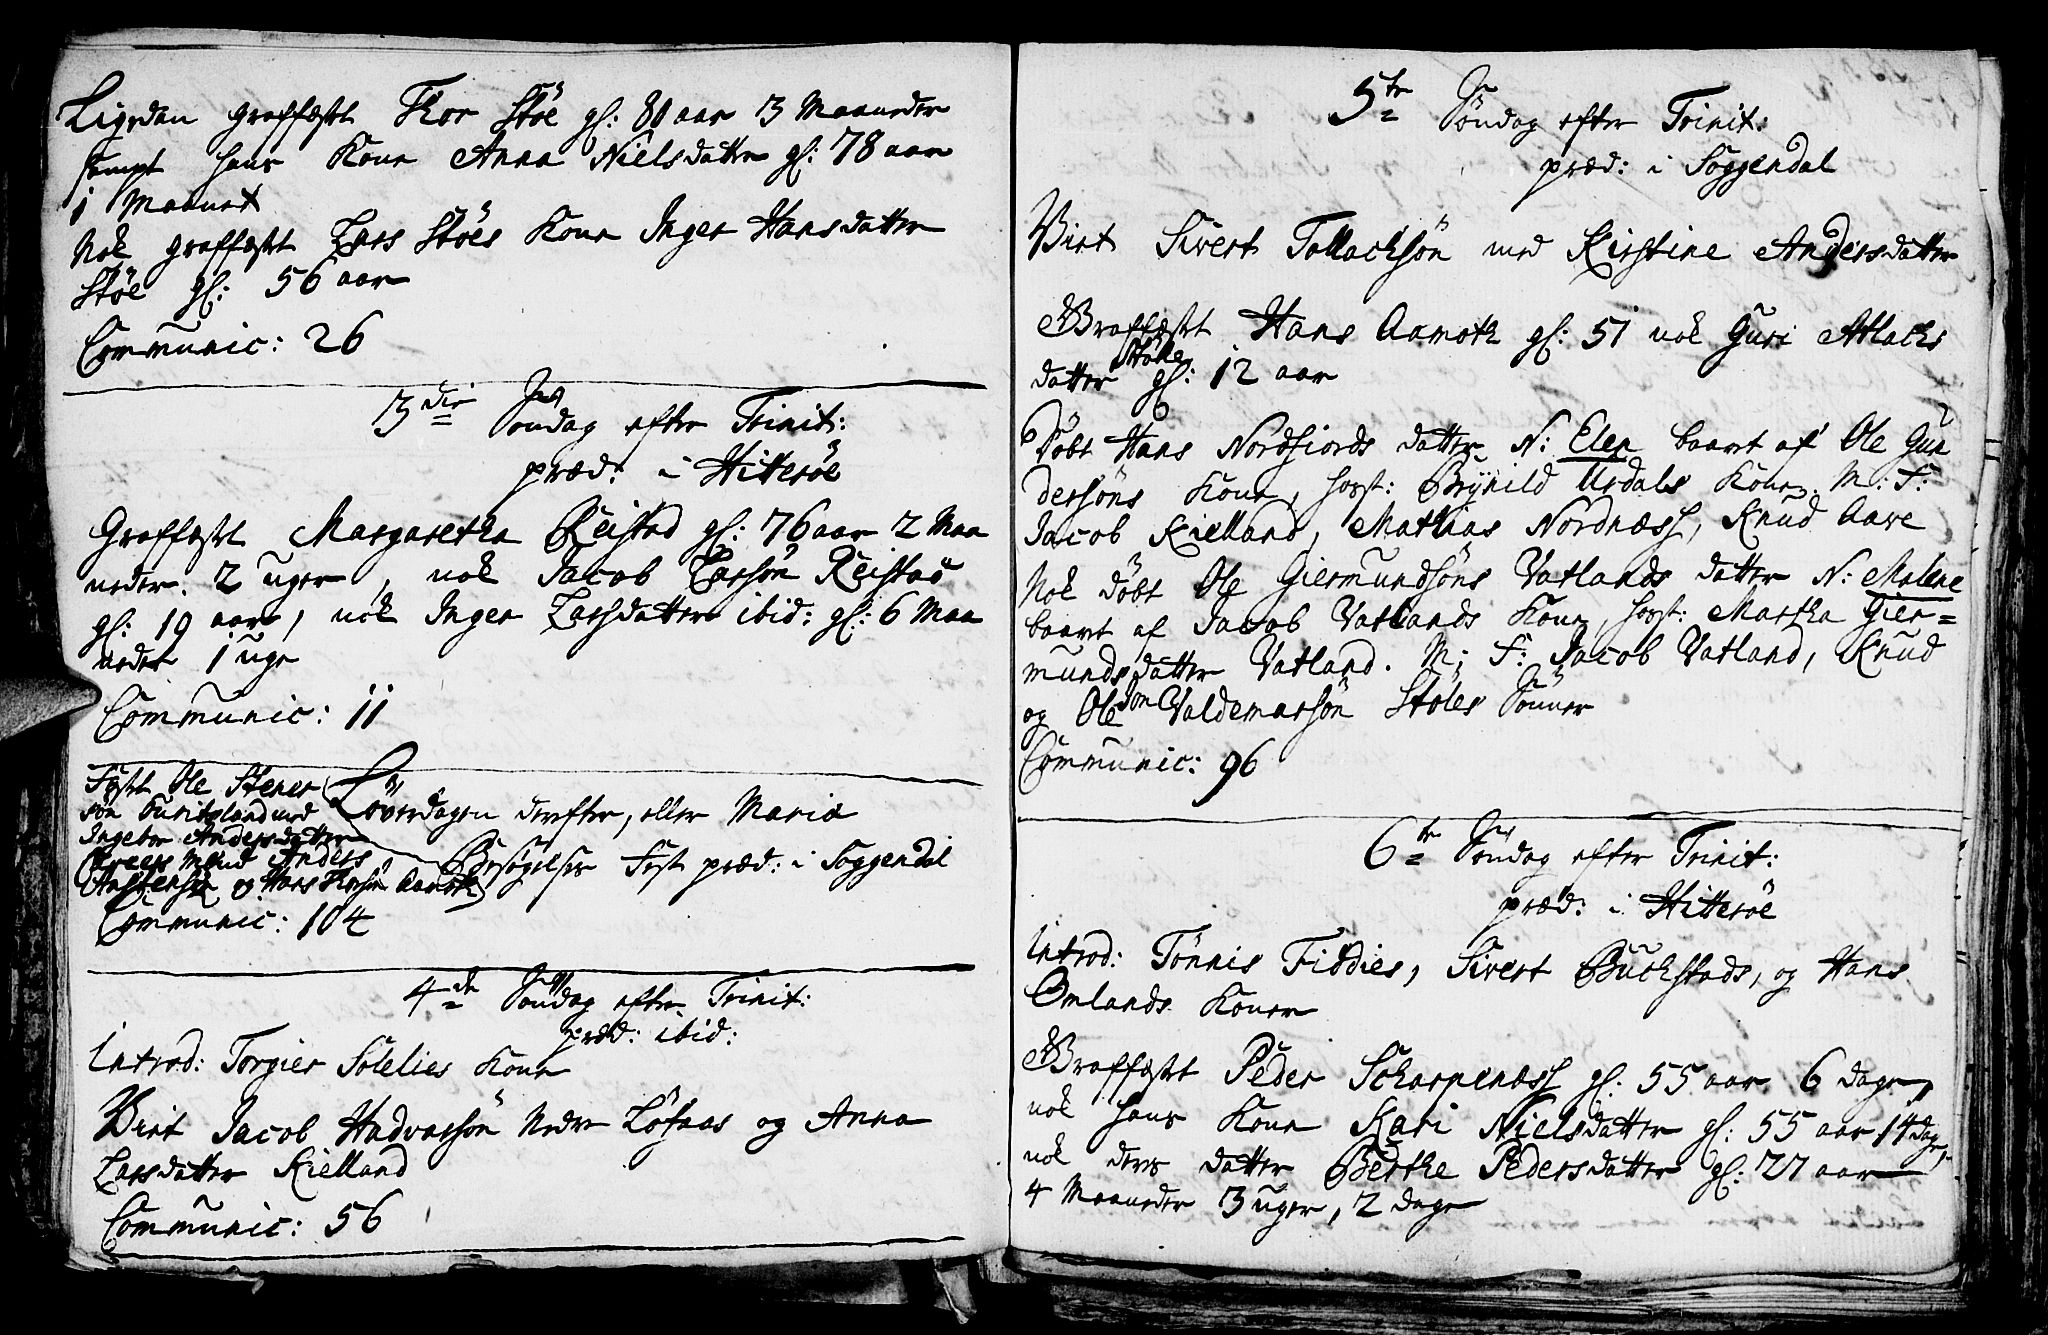 Ligedan graffæstet Thor Støe gl: 80 aar 3 Maaneder
sampt hans Kone Anna Nielsdatter gl: 78 aar
1 Maanet
Nok graffæstet Lars Støes Kone Inger Hansdatter
Støe gl: 56 aar
Communic: 26
3die Søndag efter Trinit:
præd: i Hitterøe
Graffæstet Margaretha Reistad gl: 76 aar 2 Maa
neder 2 uger, nok Jacob Larssøn Reistad
gl: 19 aar, nok Inger Larsdatter ibid: gl: 6 Maa
neder 1 uge
Communic: 11
Fæst Ole Stener
søn med
Ingebor Andersdatter
Anders
og Hans Aamoth
Löverdagen derefter, eller Mariæ
Besøgelses Fest præd: i Soggendal
Communic: 104
4de Søndag efter Trinit:
præd: ibid:
Introd: Torgier Solelies Kone
Viet Jacob Hadvarsøn Nedre Løfaas og Anna
Larsdatter Kielland
Communic: 56
5te Søndag efter Trinit:
præd: i Soggendal
Viet Sivert Tollacksøn med Kirstine Andersdatter
Graffæstet Hans Aamoth gl: 51 nok Guri Atlacks
datter Støle gl: 12 aar
Døbt Hans Nordfiords datter N: Elen baaret af Ole Gun
dersøns Kone, hogst: Brynild Urdals Kone. M: F:
Jacob Kielland, Mathias Nordnæss, Knud Aare
Nok døbt Ole Giermundsøns Vatlands datter N: Malene
baaret af Jacob Vatlands Kone, hogst: Martha Gier=
mundsdatter Vatland. M: F: Jacob Vatland, Knud
og Ole Valdemarsøn Støles Sønner
Communic: 96
6te Søndag efter Trinit:
præd: i Hitterøe
Introd: Tønnis Fiddies, Sivert Buchstads, og Hans
Omlands Koner
Graffæstet Peder Scharpenæss gl: 55 aar 6 dage,
nok hans Kone Kari Nielsdatter gl: 55 aar 14 dage,
nok deres datter Berthe Pedersdatter gl: 27 aar
4 Maaneder 3 uger, 2 dage